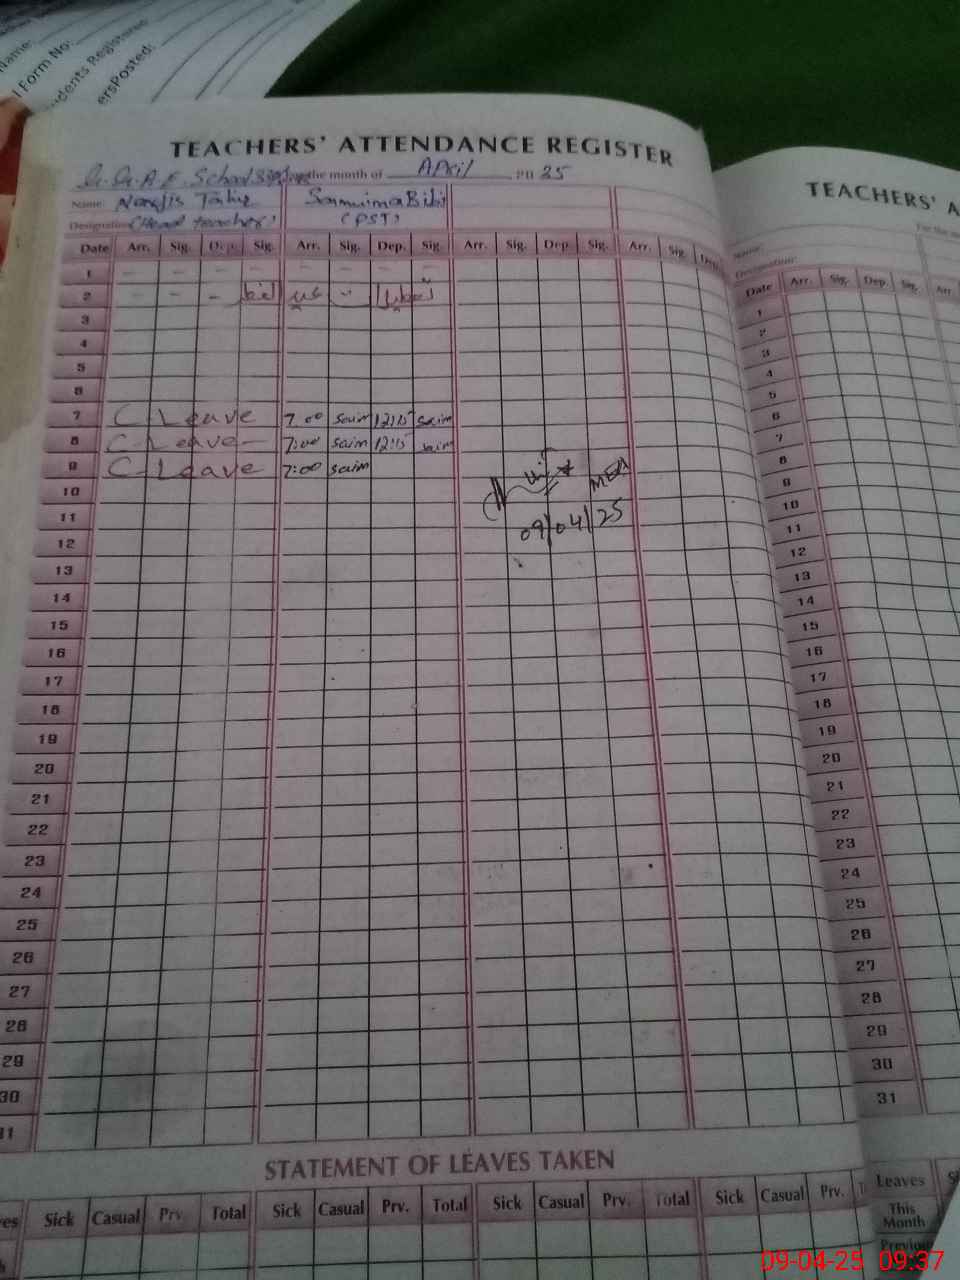 Name:
l Form No:
udents Registered
ersPosted:
TEACHERS' ATTENDANCE REGISTER
School the month of April 25
Name: Nargis Tahir Samuima Bibi
Designation (Head teacher) (PST)
Date Arr. Sig. Dep. Sig. Arr. Sig. Dep. Sig. Arr. Sig. Dep. Sig. Arr. Sig. Dep.
1 - - - - - - - -
2 - - -
3
4
5
6
7 C-Leave 7:00 saim 12:15 saim
8 C-Leave- 7:00 saim 12:15 saim
9 C-Leave 7:00 saim
MEA
10
09/04/25
11
12
13
14
15
16
17
18
19
20
21
22
23
24
25
26
27
28
29
30
31
STATEMENT OF LEAVES TAKEN
es Sick Casual Prv. Total Sick Casual Prv. Total Sick Casual Prv. Total Sick Casual Prv.
TEACHERS' A
For the m
Name:
Designation:
Date Arr. Sig. Dep. Sig. Arr.
1
2
3
4
5
6
7
8
9
10
11
12
13
14
15
16
17
18
19
20
21
22
23
24
25
26
27
28
29
30
31
Leaves
This
Month
Previou
09-04-25 09:37